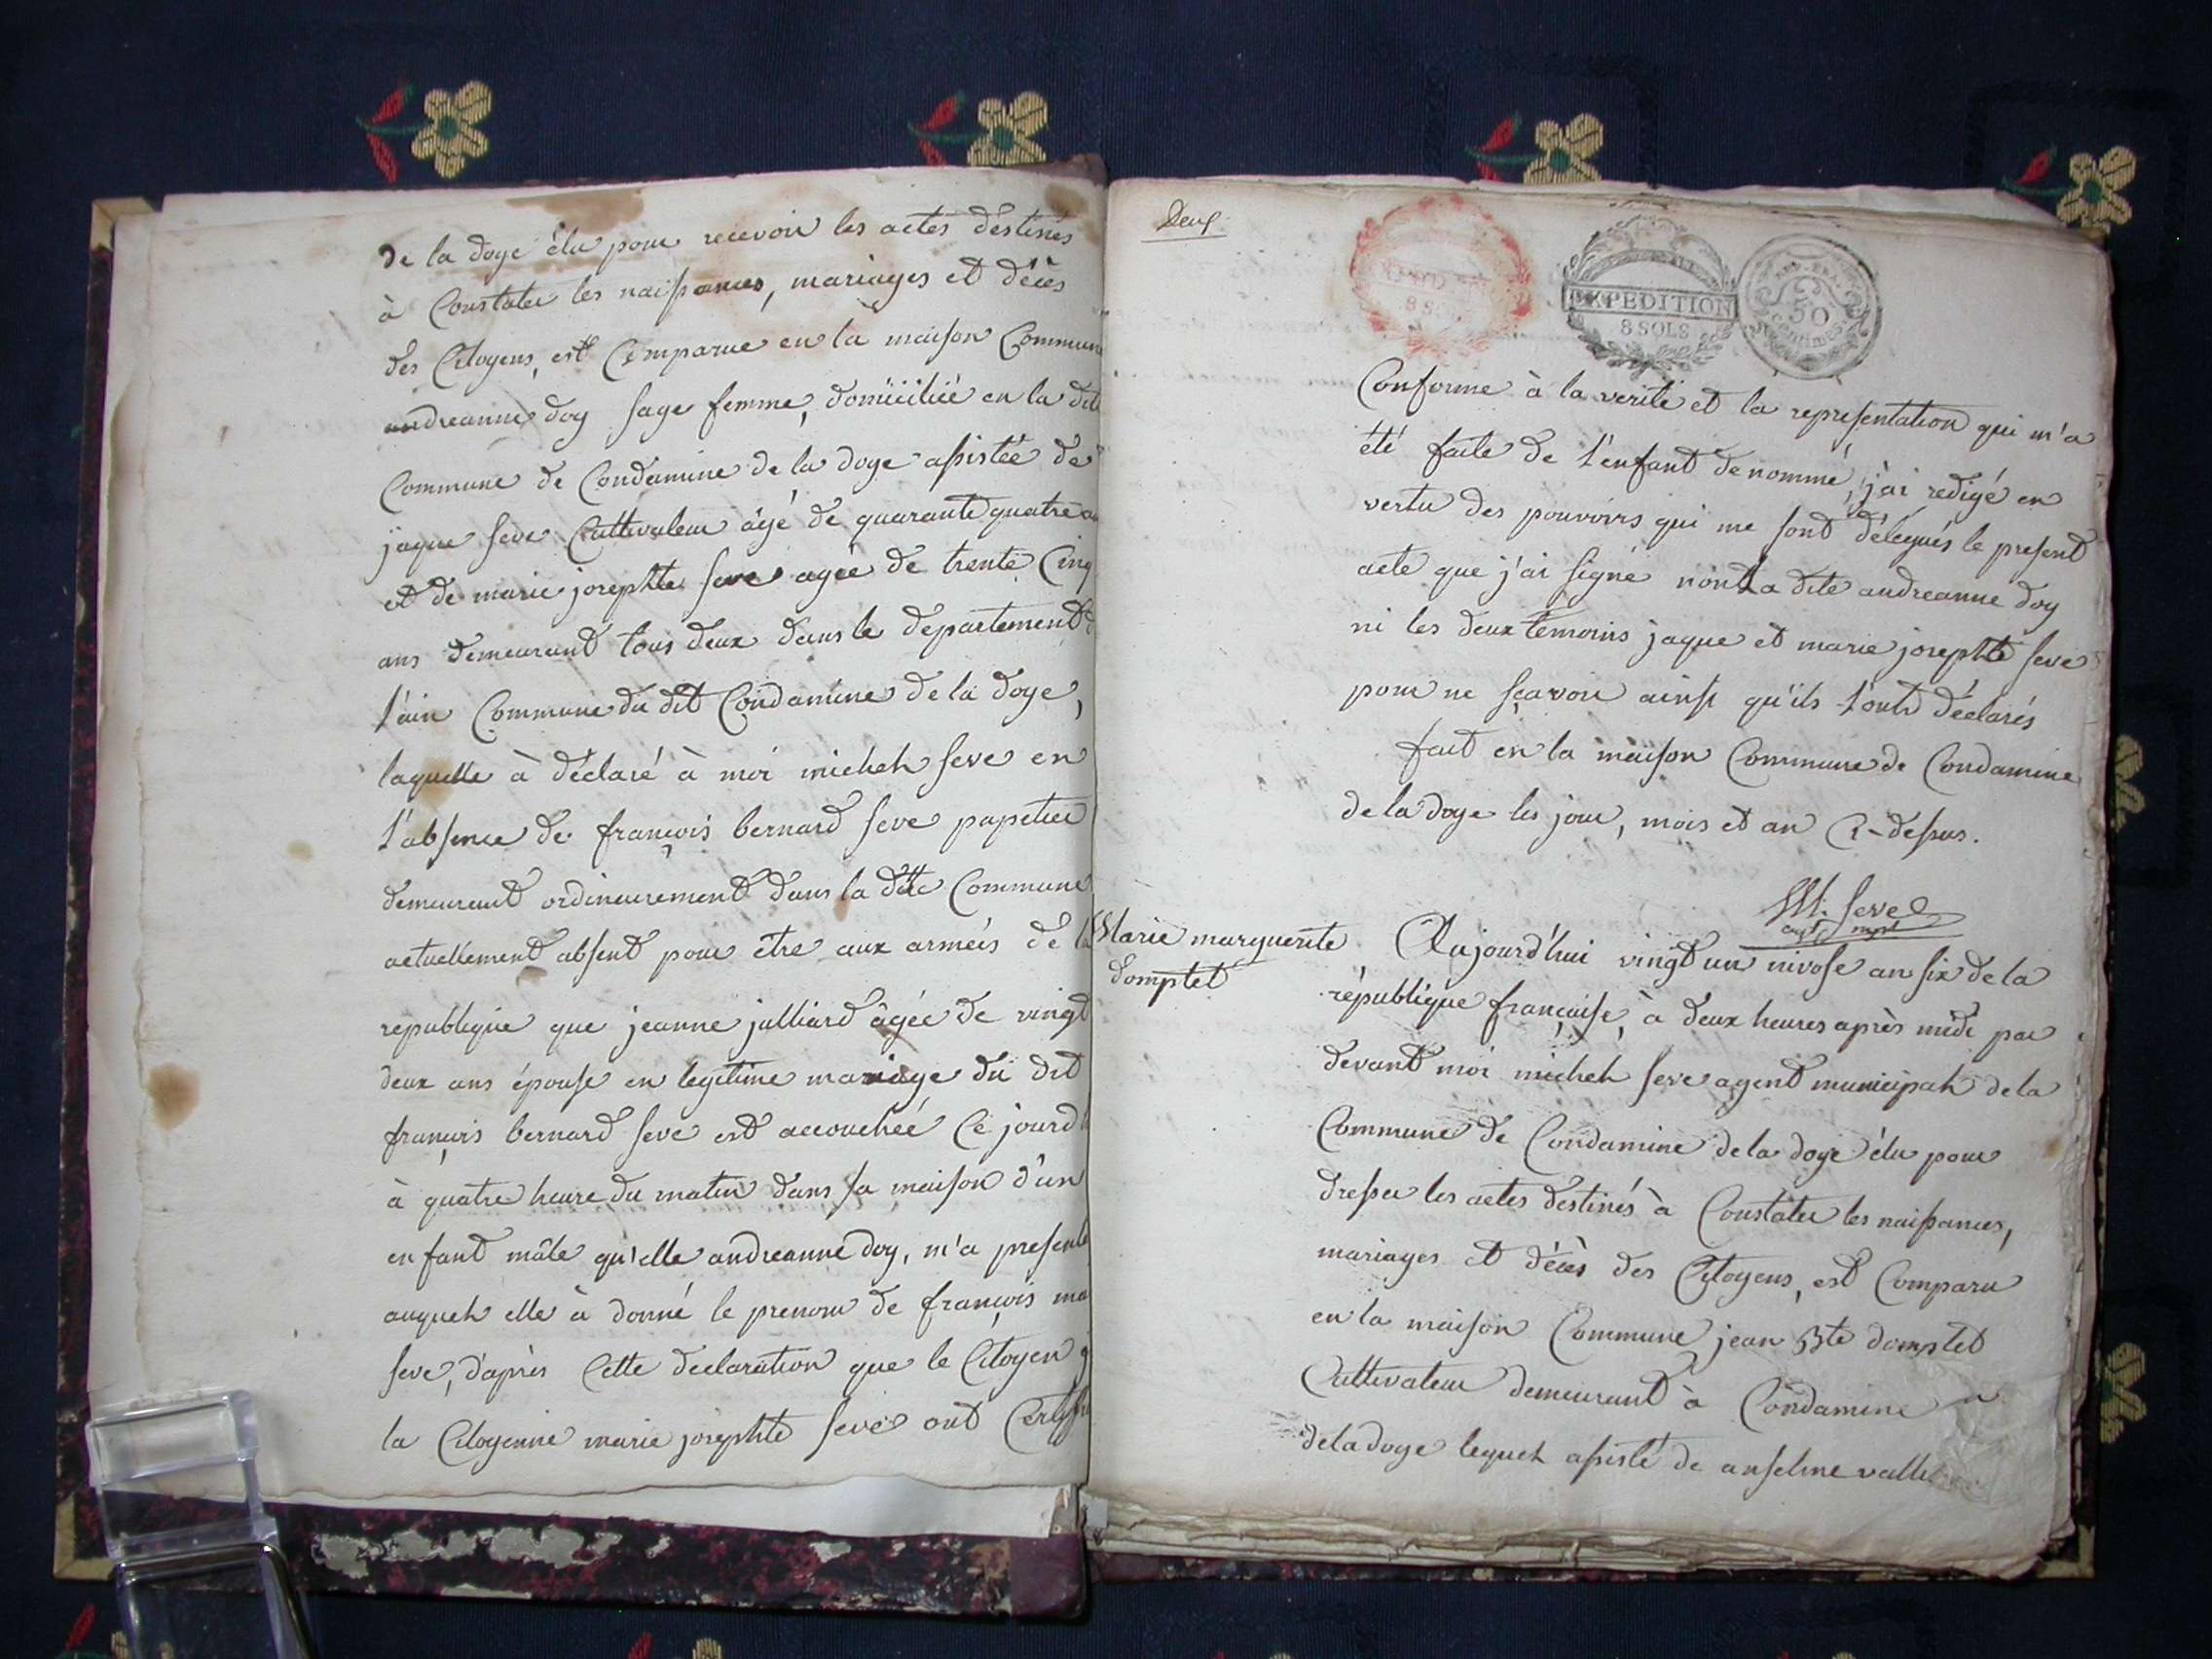 de la doye élu pour recevoir les actes destinés
à Constater les naissances, mariages et décès
des Citoyens, est Comparue en la maison Commune
andreanne doy sage femme, domiciliée en la dit
Commune de Condamine de la doye assistée de
jaque seve Cultivateur âgé de quarante quatre an
et de marie josephte seve agée de trente Cinq
ans demeurant tous deux dans le departement d
l'ain Commune du dit Condamine de la doye,
laquelle à déclaré à moi michel seve en
l'absence de françois bernard seve papetier
demeurant ordineurement dans la ditte Commune
actuellement absent pour être aux armées de la
republique que jeanne julliard âgée de vingt
deux ans épouse en legitime mariage du dit
françois bernard seve est accouchée Ce jourd'h
à quatre heure du matin dans sa maison d'un
enfant mâle qu'elle andreanne doy, m'a presenté
auquel elle à donné le prenom de françois ma
seve, d'après Cette declaration que le Citoyen j
la Citoyenne marie josephte seve ont Certifié
Deux
EXPEDITION
8 SOLS
REP. FRA.
50
centimes
Conforme à la verité et la representation qui m'a
été faite de l'enfant denommé, j'ai redigé en
vertu des pouvoirs qui me sont délégués le present
acte que j'ai signé non la dite andreanne doy
ni les deux temoins jaque et marie josephte seve
pour ne sçavoir ainsi qu'ils l'ont déclarés
fait en la maison Commune de Condamine
de la doye les jour, mois et an Ci-dessus.
M. Seve
agt. mpal
Marie marguerite
domptet
Aujourd'hui vingt un nivose an six de la
république française, à deux heures après midi par
devant moi michel seve agent municipal de la
Commune de Condamine de la doye élu pour
dresser les actes destinés à Constater les naissances,
mariages et décès des Citoyens, est Comparu
en la maison Commune jean Bte domptet
Cultivateur demeurant à Condamine
de la doye lequel assisté de anselme vallet